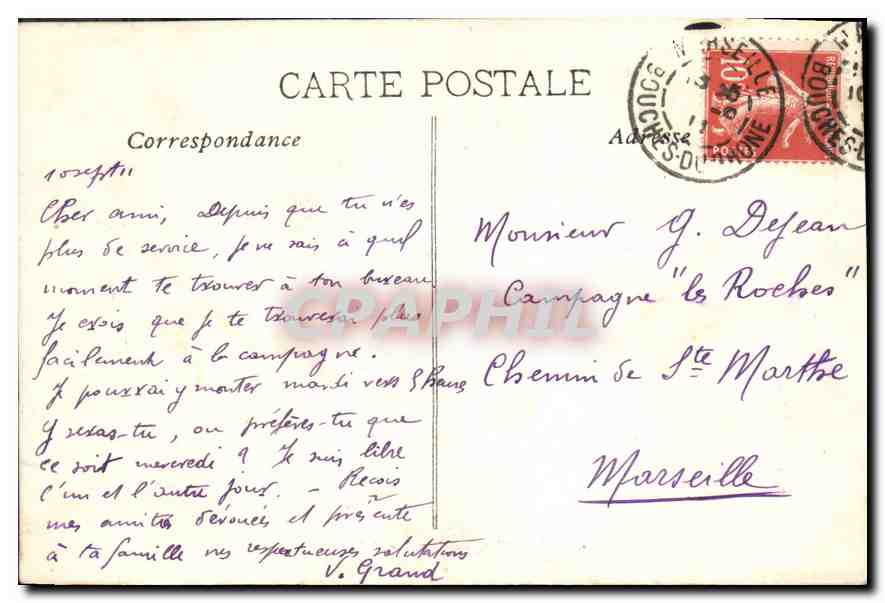 CARTE POSTALE
Correspondance
Adresse
MARSEILLE
BOUCHES-DU-RHONE
10
POSTES
10 sept 11
Cher ami, Depuis que tu n'es
plus de service, je ne sais à quel
moment te trouver à ton bureau
Je crois que je te trouverai plus
facilement à la campagne.
Je pourrai y monter mardi vers 5 heures
Y seras-tu, ou préfères-tu que
ce soit mercredi ? Je suis libre
l'un et l'autre jour. - Reçois
mes amitiés dévouées et présente
à ta famille mes respectueuses salutations
V. Grand
Monsieur G. DeJean
Campagne "les Roches"
Chemin de Ste Marthe
Marseille
CPAPHIL